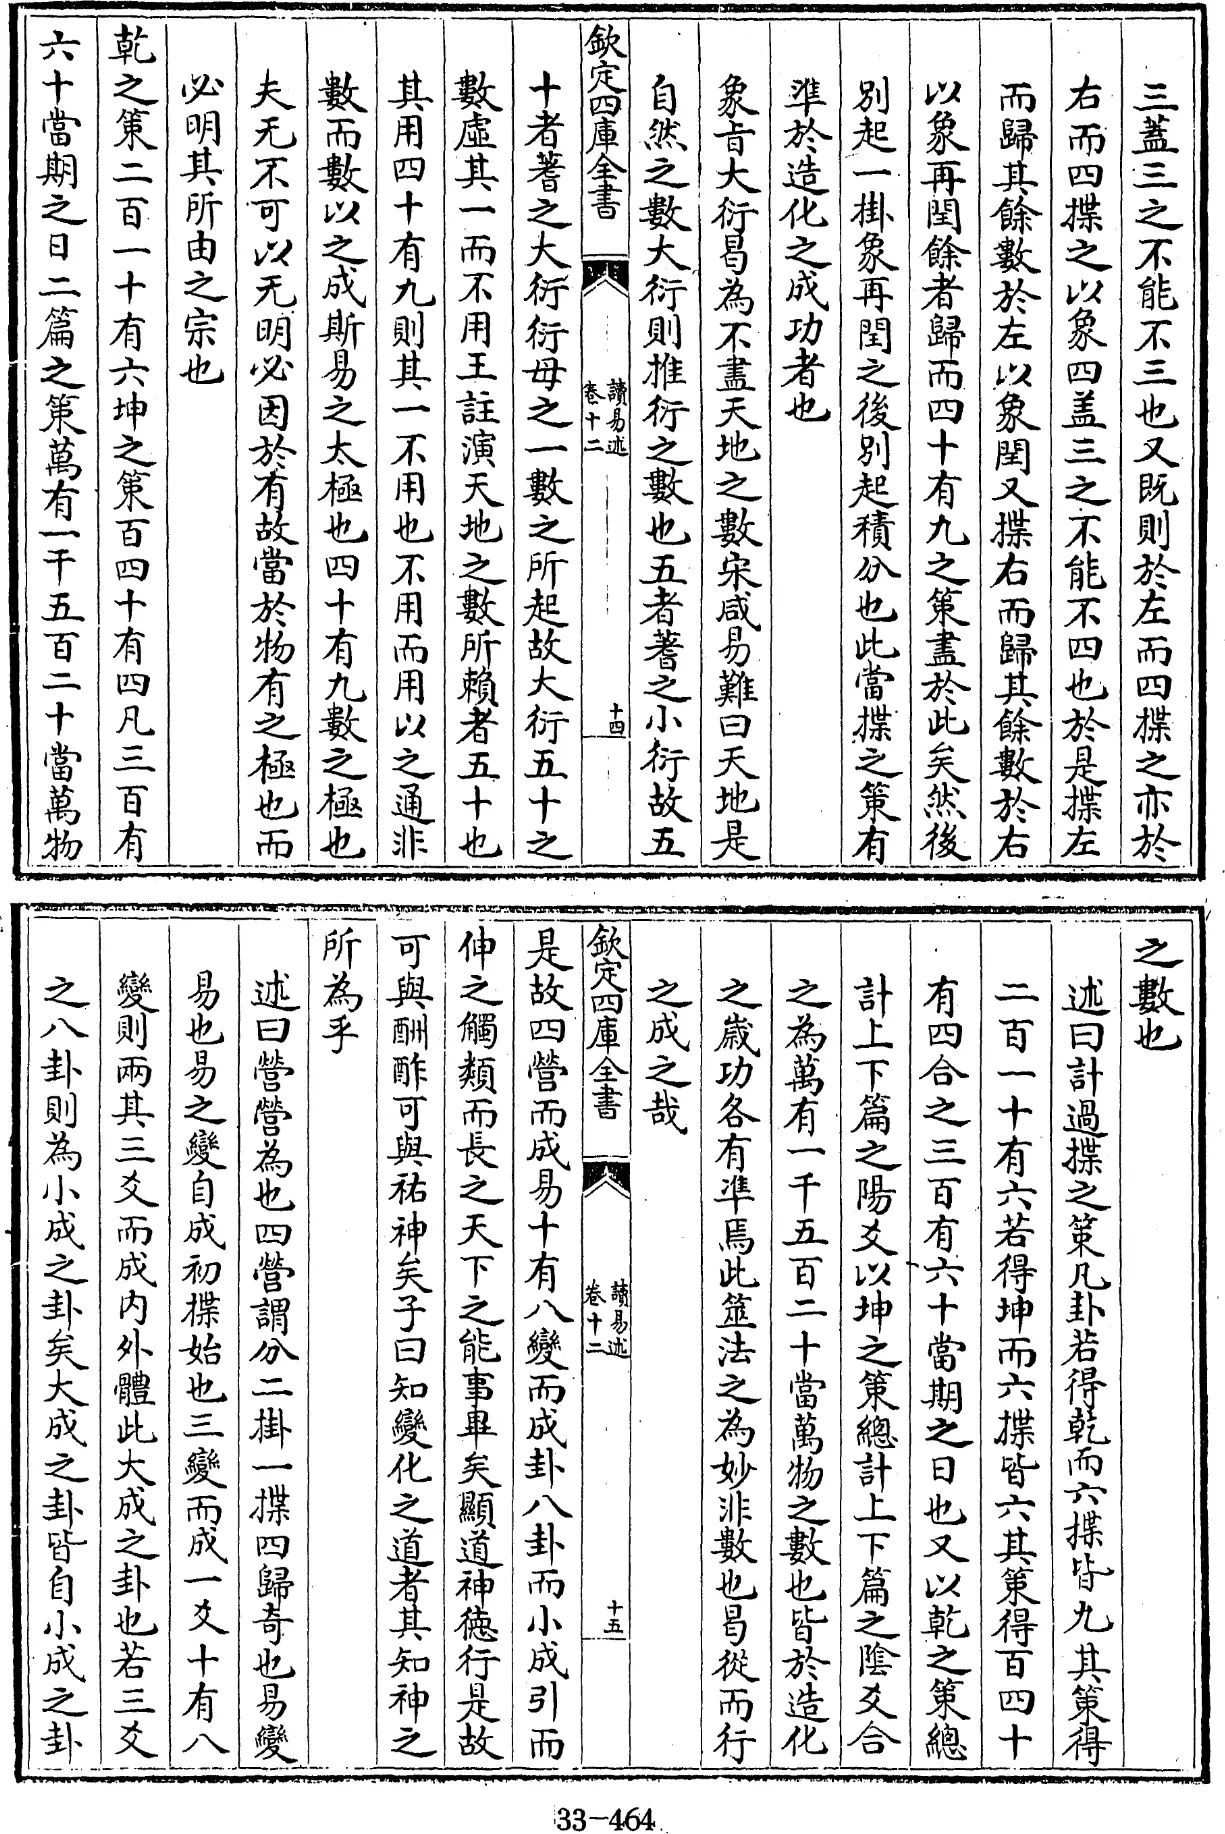 三蓋三之不能不三也又既則於左而四揲之亦於
右而四揲之以象四蓋三之不能不四也於是揲左
而歸其餘數於左以象閏又揲右而歸其餘數於右
以象再閏餘者歸而四十有九之策盡於此矣然後
別起一掛象再閏之後別起積分也此當揲之策有
準於造化之成功者也
象旨大衍曷為不盡天地之數宋咸易難曰天地是
自然之數大衍則推衍之數也五者蓍之小衍故五
欽定四庫全書
讀易述
卷十二
十四
十者蓍之大衍衍母之一數之所起故大衍五十之
數虛其一而不用王註演天地之數所賴者五十也
其用四十有九則其一不用也不用而用以之通非
數而數以之成斯易之太極也四十有九數之極也
夫无不可以无明必因於有故當於物有之極也而
必明其所由之宗也
乾之策二百一十有六坤之策百四十有四凡三百有
六十當期之日二篇之策萬有一千五百二十當萬物
之數也
述曰計過揲之策凡卦若得乾而六揲皆九其策得
二百一十有六若得坤而六揲皆六其策得百四十
有四合之三百有六十當期之日也又以乾之策總
計上下篇之陽爻以坤之策總計上下篇之陰爻合
之為萬有一千五百二十當萬物之數也皆於造化
之歲功各有準焉此筮法之為妙非數也曷從而行
之成之哉
欽定四庫全書
讀易述
卷十二
十五
是故四營而成易十有八變而成卦八卦而小成引而
伸之觸類而長之天下之能事畢矣顯道神德行是故
可與酬酢可與祐神矣子曰知變化之道者其知神之
所為乎
述曰營營為也四營謂分二掛一揲四歸奇也易變
易也易之變自成初揲始也三變而成一爻十有八
變則兩其三爻而成內外體此大成之卦也若三爻
之八卦則為小成之卦矣大成之卦皆自小成之卦
33-464